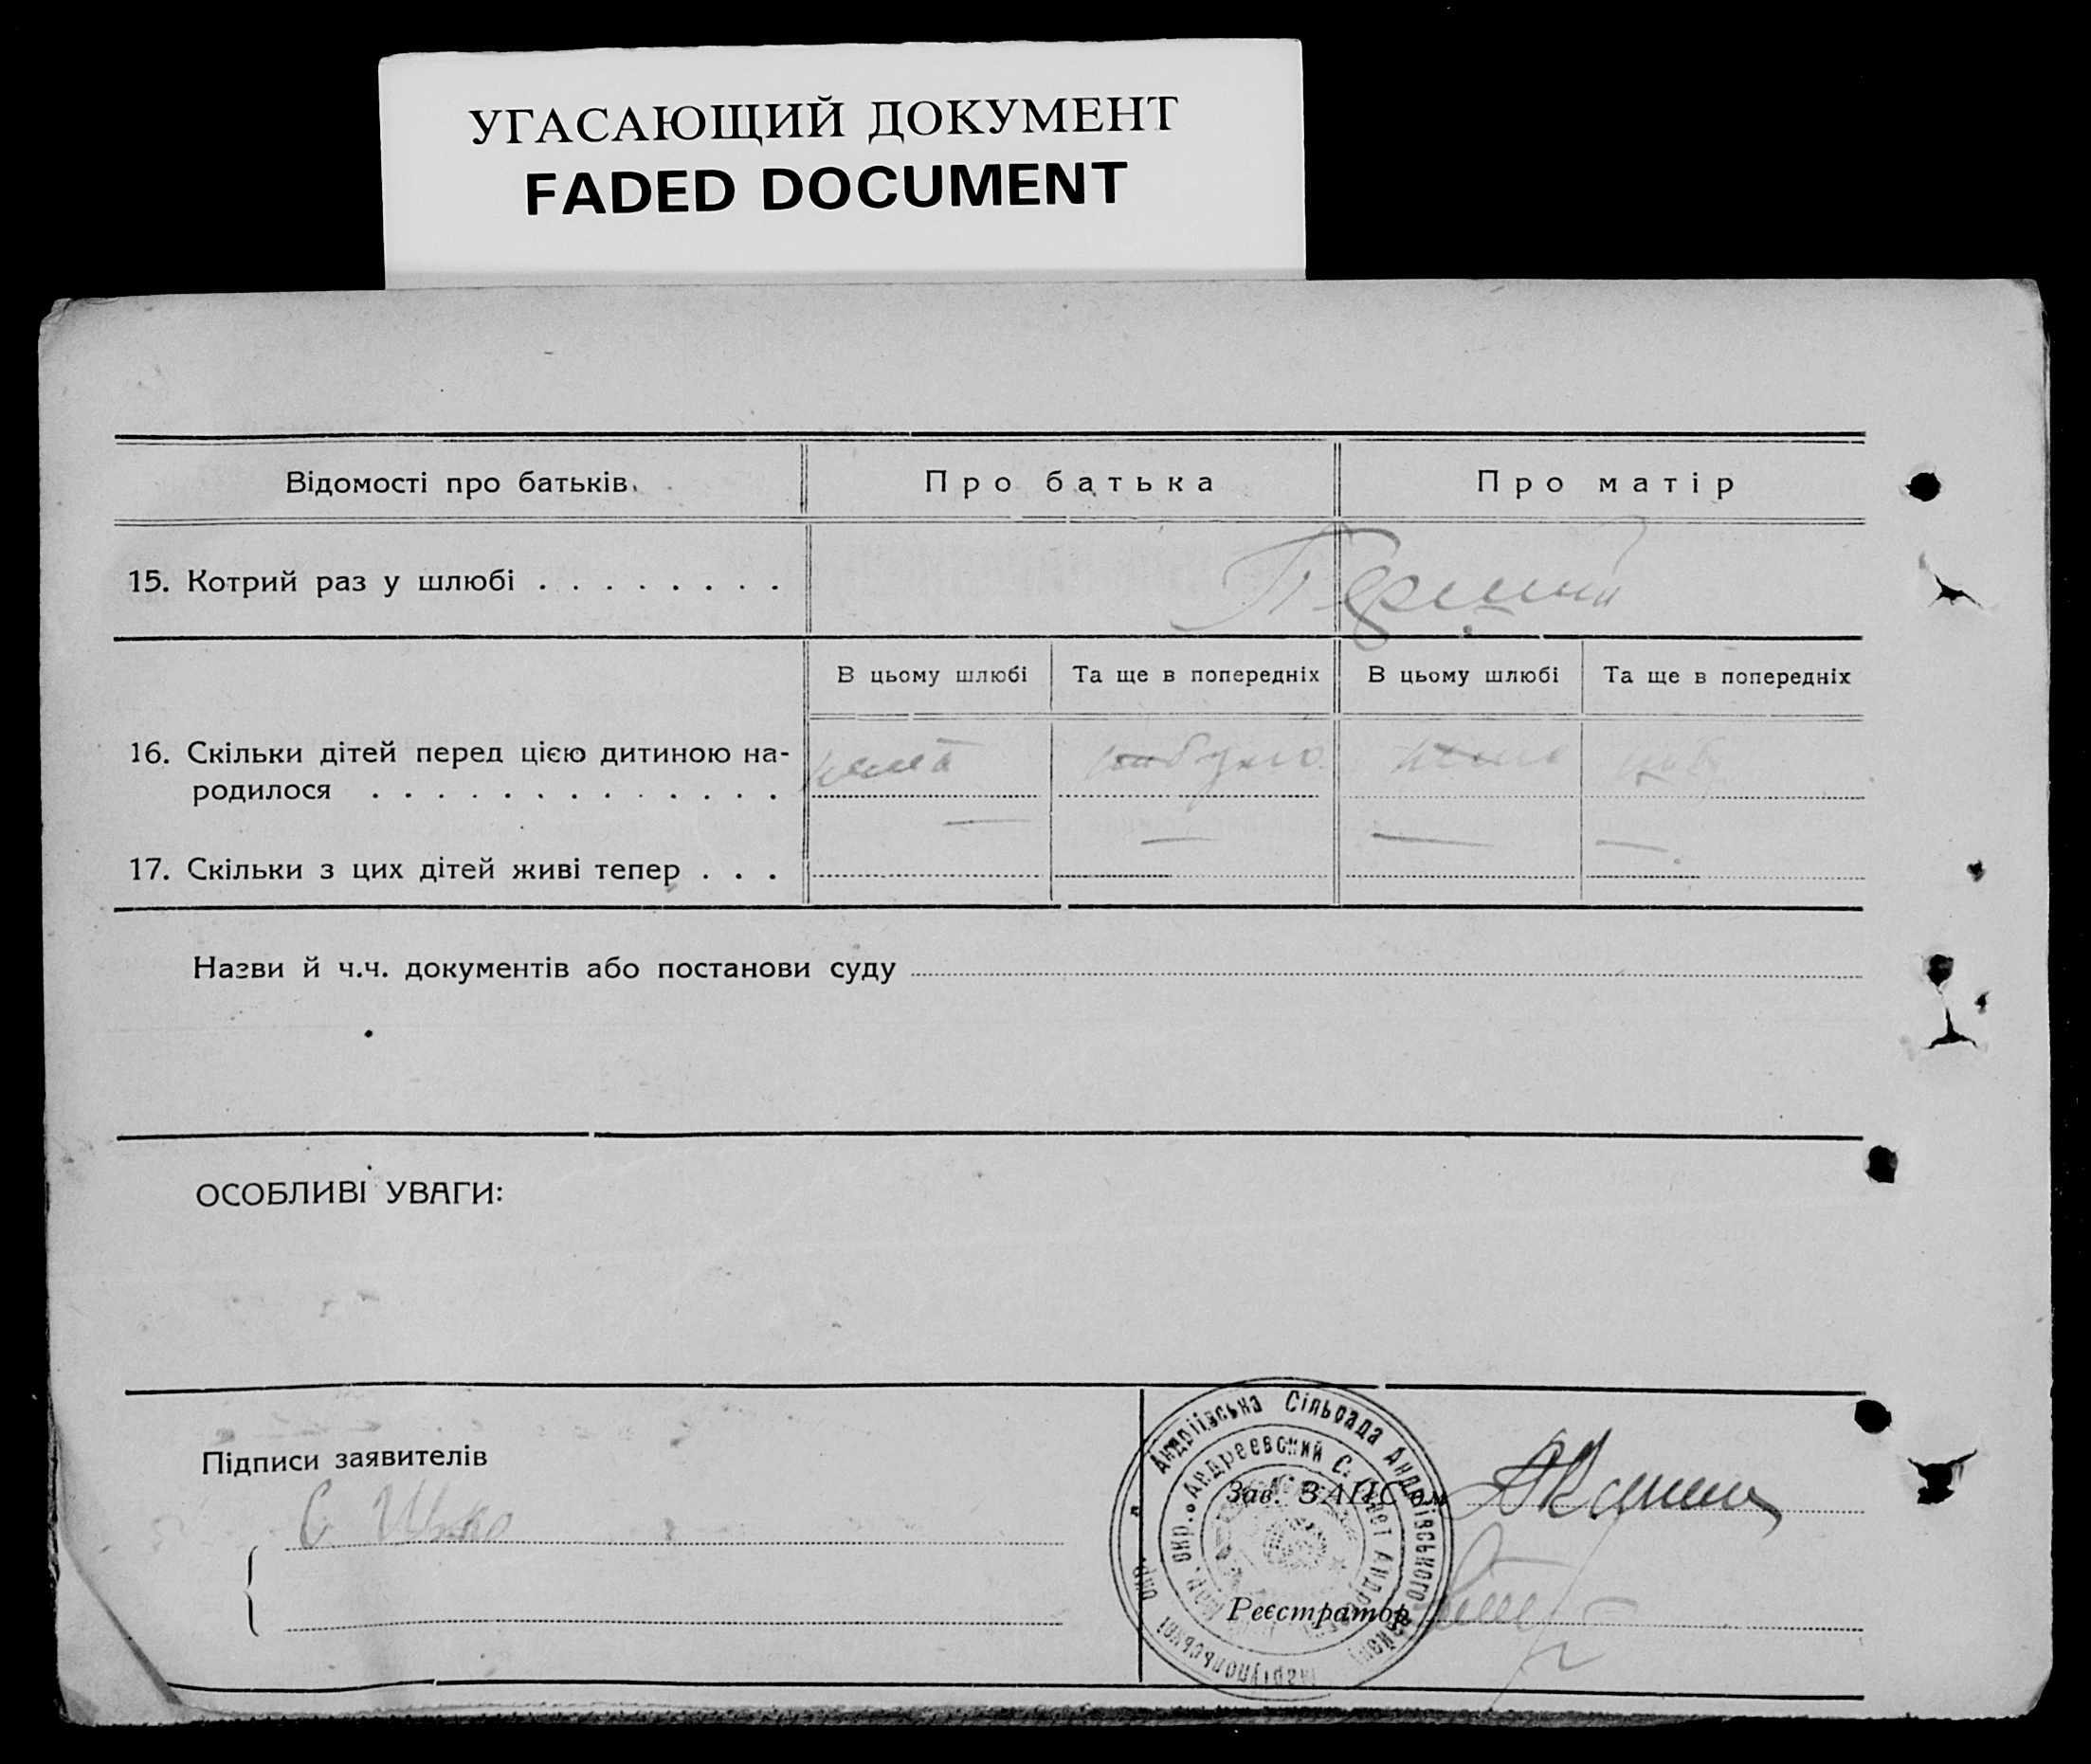 УГАСАЮЩИЙ ДОКУМЕНТ
FADED DOCUMENT
Відомості про батьків.
Про батька
Про матір
15. Котрий раз у шлюбі . . . . . . . .
Перший
В цьому шлюбі
Та ще в попередніх
В цьому шлюбі
Та ще в попередніх
16. Скільки дітей перед цією дитиною на-
родилося . . . . . . . . . . . . .
нема
не було
нема
17. Скільки з цих дітей живі тепер . . .
Назви й ч.ч. документів або постанови суду
ОСОБЛИВІ УВАГИ:
Підписи заявителів
Андріївська Сільрада Андріївського району Маріупольської окр.
Андреевский С. Совет Андреевск. Мар. окр.
Зав. ЗАГС'ом
Реєстратор